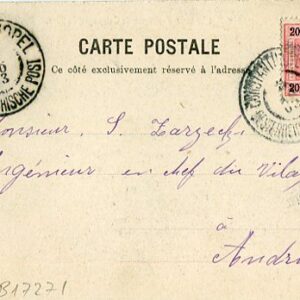 CARTE POSTALE
Ce côté exclusivement réservé à l'adresse
20
20
OPEL
ISCHE POST
CONSTANTI
onsieur S. Zarzecki
ngénieur en chef du Vila
à
Andri
B17271